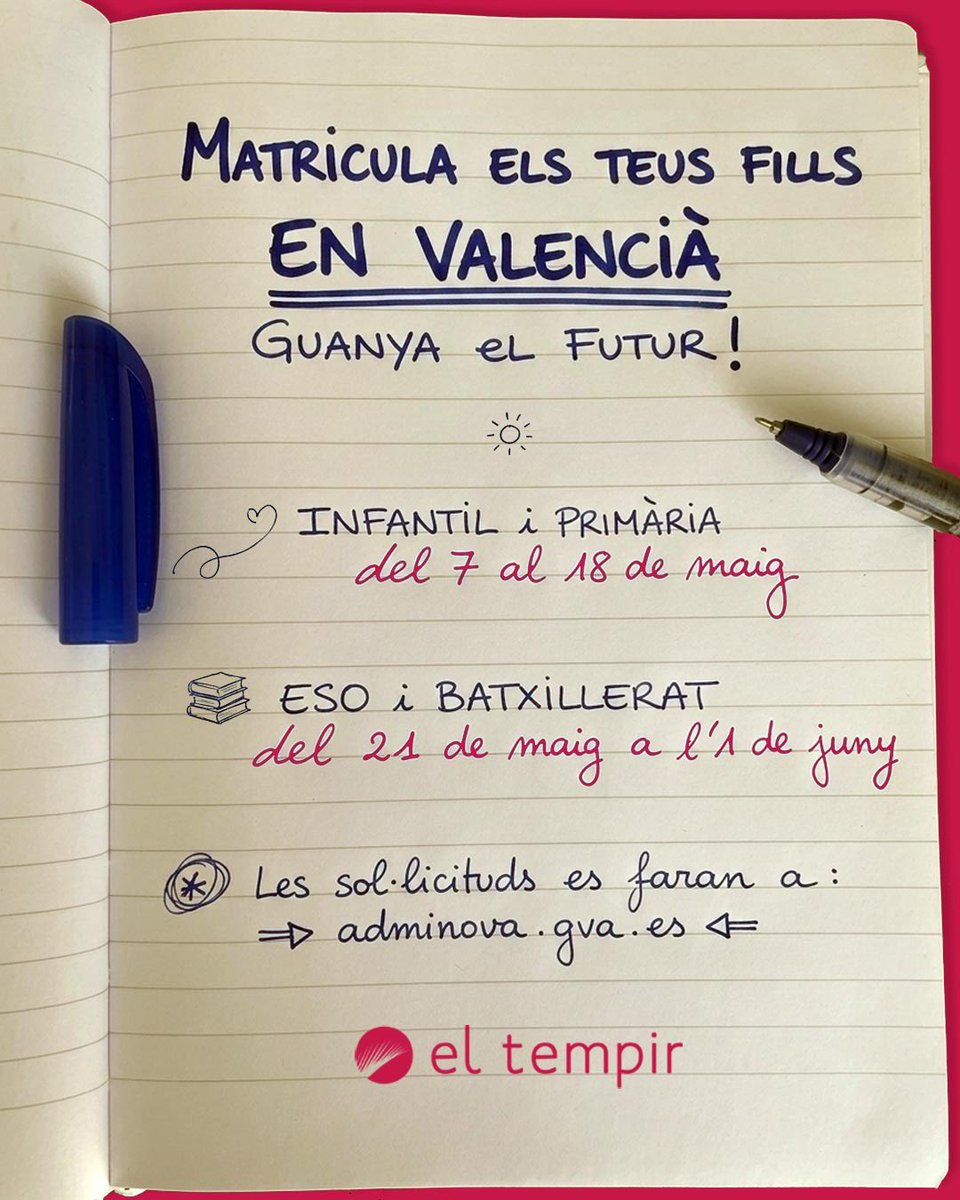 MATRICULA ELS TEUS FILLS
EN VALENCIÀ
GUANYA EL FUTUR!
INFANTIL i PRIMÀRIA
del 7 al 18 de maig
ESO i BATXILLERAT
del 21 de maig a l'1 de juny
* Les sol·licituds es faran a:
⇒ adminova.gva.es ⇐
el tempir